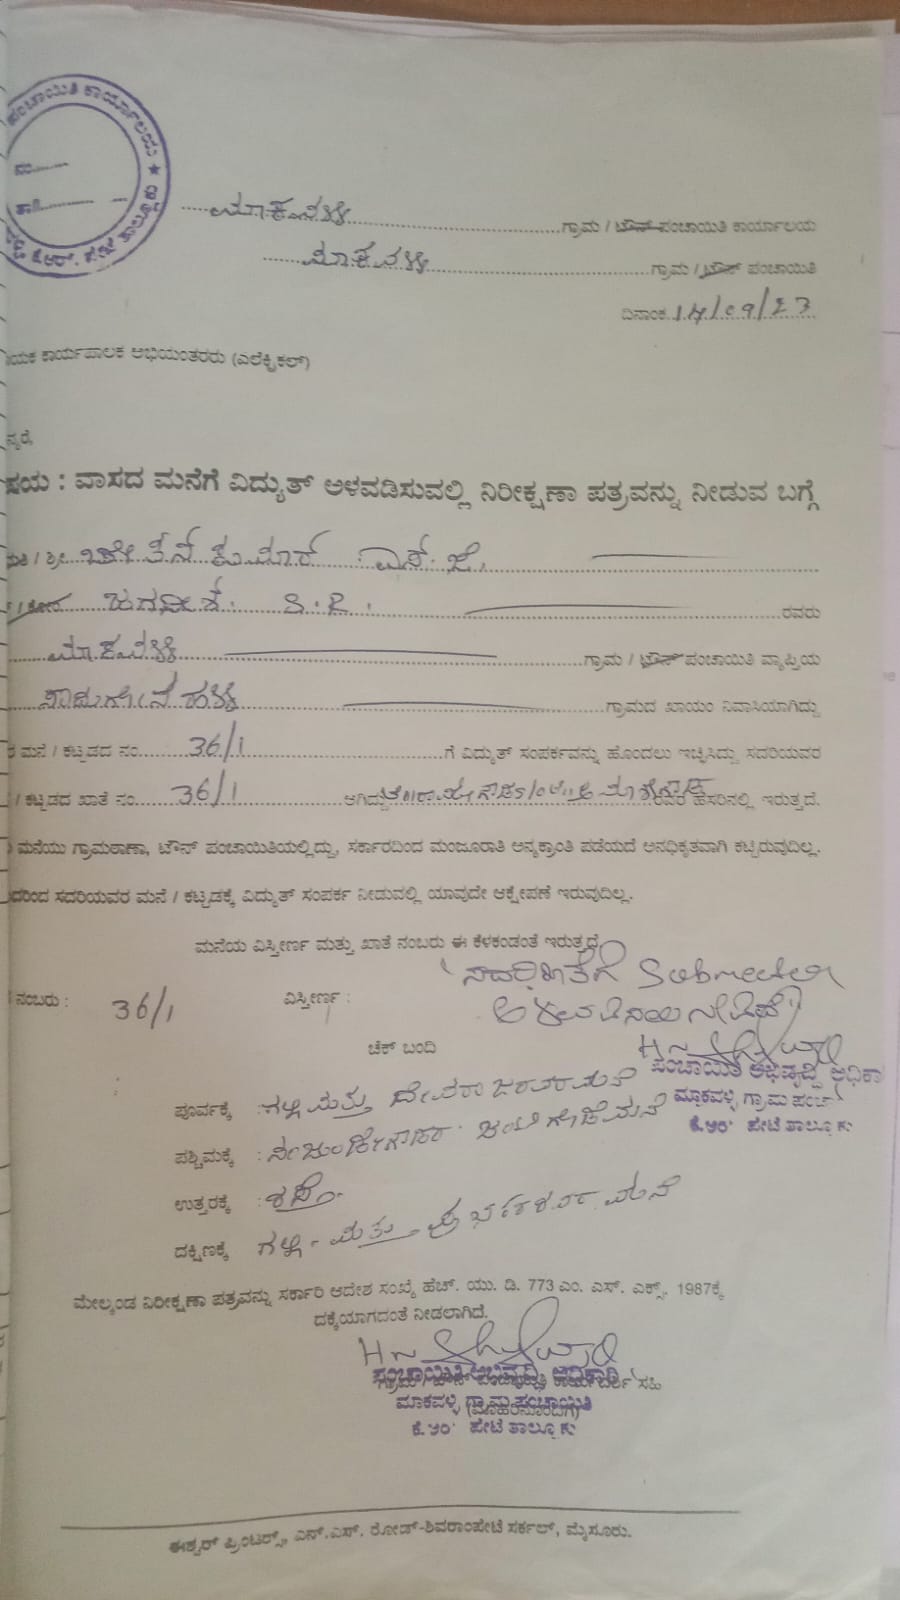 ಪಂಚಾಯಿತಿ ಕಾರ್ಯಾಲಯ ★
ನಂ.
ತಾ॥
ಕೆ.ಆರ್. ಪೇಟೆ ತಾಲ್ಲೂಕು
ಮಾಕವಳ್ಳಿ ಗ್ರಾಮ / ಟೌನ್ ಪಂಚಾಯಿತಿ ಕಾರ್ಯಾಲಯ
ಮಾಕವಳ್ಳಿ ಗ್ರಾಮ / ಟೌನ್ ಪಂಚಾಯಿತಿ
ದಿನಾಂಕ 14/09/23
ಯಕ ಕಾರ್ಯಪಾಲಕ ಅಭಿಯಂತರರು (ಎಲೆಕ್ಟ್ರಿಕಲ್)
ನ್ಯರೆ,
ಷಯ : ವಾಸದ ಮನೆಗೆ ವಿದ್ಯುತ್ ಅಳವಡಿಸುವಲ್ಲಿ ನಿರೀಕ್ಷಣಾ ಪತ್ರವನ್ನು ನೀಡುವ ಬಗ್ಗೆ
ಮತಿ / ಶ್ರೀ ಕುಮಾರ್ ಎಸ್. ಜೆ.
ಜಗದೀಶ. S.R. ರವರು
ಮಾಕವಳ್ಳಿ ಗ್ರಾಮ / ಟೌನ್ ಪಂಚಾಯಿತಿ ವ್ಯಾಪ್ತಿಯ
ಸಾದುಗೋನಹಳ್ಳಿ ಗ್ರಾಮದ ಖಾಯಂ ನಿವಾಸಿಯಾಗಿದ್ದು
ಮನೆ / ಕಟ್ಟಡದ ನಂ. 36/1 ಗೆ ವಿದ್ಯುತ್ ಸಂಪರ್ಕವನ್ನು ಹೊಂದಲು ಇಚ್ಛಿಸಿದ್ದು ಸದರಿಯವರ
/ ಕಟ್ಟಡದ ಖಾತೆ ನಂ. 36/1 ಆಗಿದ್ದು ರವರ ಹೆಸರಿನಲ್ಲಿ ಇರುತ್ತದೆ.
ಮನೆಯು ಗ್ರಾಮಠಾಣಾ, ಟೌನ್ ಪಂಚಾಯಿತಿಯಲ್ಲಿದ್ದು, ಸರ್ಕಾರದಿಂದ ಮಂಜೂರಾತಿ ಅನ್ಯಕ್ರಾಂತಿ ಪಡೆಯದೆ ಅನಧಿಕೃತವಾಗಿ ಕಟ್ಟಿರುವುದಿಲ್ಲ.
ದರಿಂದ ಸದರಿಯವರ ಮನೆ / ಕಟ್ಟಡಕ್ಕೆ ವಿದ್ಯುತ್ ಸಂಪರ್ಕ ನೀಡುವಲ್ಲಿ ಯಾವುದೇ ಆಕ್ಷೇಪಣೆ ಇರುವುದಿಲ್ಲ.
ಮನೆಯ ವಿಸ್ತೀರ್ಣ ಮತ್ತು ಖಾತೆ ನಂಬರು ಈ ಕೆಳಕಂಡಂತೆ ಇರುತ್ತದೆ
ಸದರಿ ಖಾತೆಗೆ Submeter
ನಂಬರು : 36/1 ವಿಸ್ತೀರ್ಣ :
ಚೆಕ್ ಬಂದಿ
ಪಂಚಾಯಿತಿ ಅಭಿವೃದ್ಧಿ ಅಧಿಕಾ
ಮಾಕವಳ್ಳಿ ಗ್ರಾಮ ಪಂಚಾ
ಕೆ.ಆರ್ ಪೇಟೆ ತಾಲ್ಲೂಕು
ಪೂರ್ವಕ್ಕೆ : ಗಲ್ಲಿ ಮತ್ತು ಮನೆ
ಪಶ್ಚಿಮಕ್ಕೆ : ಮನೆ
ಉತ್ತರಕ್ಕೆ : ರಸ್ತೆ.
ದಕ್ಷಿಣಕ್ಕೆ ಗಲ್ಲಿ - ಮತ್ತು ಮನೆ
ಮೇಲ್ಕಂಡ ನಿರೀಕ್ಷಣಾ ಪತ್ರವನ್ನು ಸರ್ಕಾರಿ ಆದೇಶ ಸಂಖ್ಯೆ ಹೆಚ್. ಯು. ಡಿ. 773 ಎಂ. ಎಸ್. ಎಕ್ಸ್. 1987ಕ್ಕೆ
ದಕ್ಕೆಯಾಗದಂತೆ ನೀಡಲಾಗಿದೆ.
ಪಂಚಾಯಿತಿ ಅಭಿವೃದ್ಧಿ ಅಧಿಕಾರಿ ಸಹಿ
ಮಾಕವಳ್ಳಿ ಗ್ರಾಮ ಪಂಚಾಯಿತಿ
ಕೆ.ಆರ್ ಪೇಟೆ ತಾಲ್ಲೂಕು
ಈಶ್ವರ್ ಪ್ರಿಂಟರ್ಸ್, ಎನ್.ಎಸ್. ರೋಡ್-ಶಿವರಾಂಪೇಟೆ ಸರ್ಕಲ್, ಮೈಸೂರು.